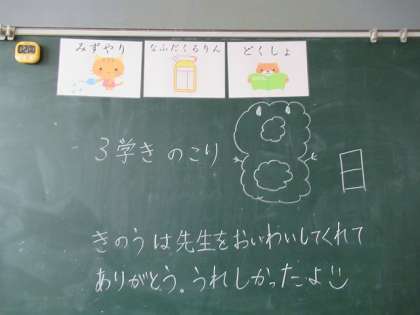 みずやり
なふだくるりん
どくしょ
3学き のこり 8日
きのうは先生をおいわいしてくれて
ありがとう。うれしかったよ